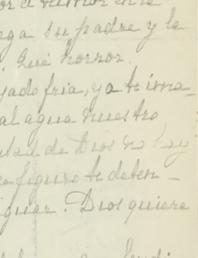 or a tumor en la
ega su padre y le
. Que horror.
jado fria, ya te ima-
al agua nuestro
dad de Dios no hay
figuro te deten-
iguar. Dios quiera